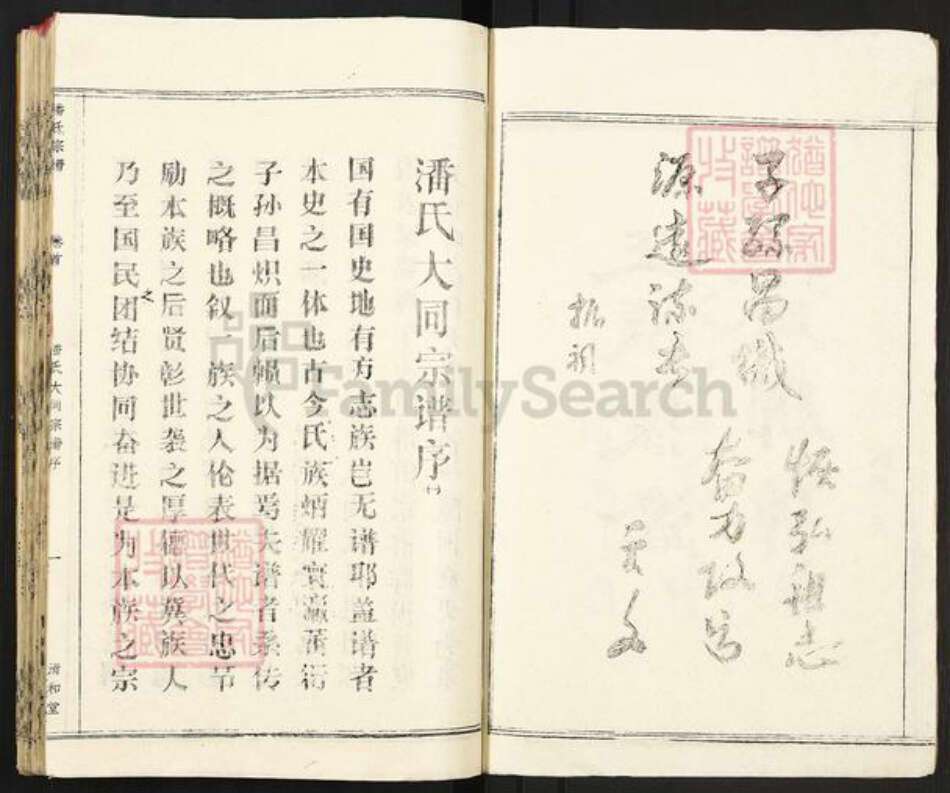 子孙昌炽
源远流长
振祖
恢弘祖志
奋力
潘氏大同宗谱序
国有国史地有方志族岂无谱耶盖谱者
本史之一体也古今氏族炳耀寰瀛蕃衍
子孙昌炽而后赖以为据焉夫谱者系传
之概略也叙一族之人伦表世代之忠节
励本族之后贤彰世袭之厚德以冀族人
乃至国民之团结协同奋进是为本族之宗
潘氏宗谱
卷首
潘氏大同宗谱序
一
清和堂
FamilySearch